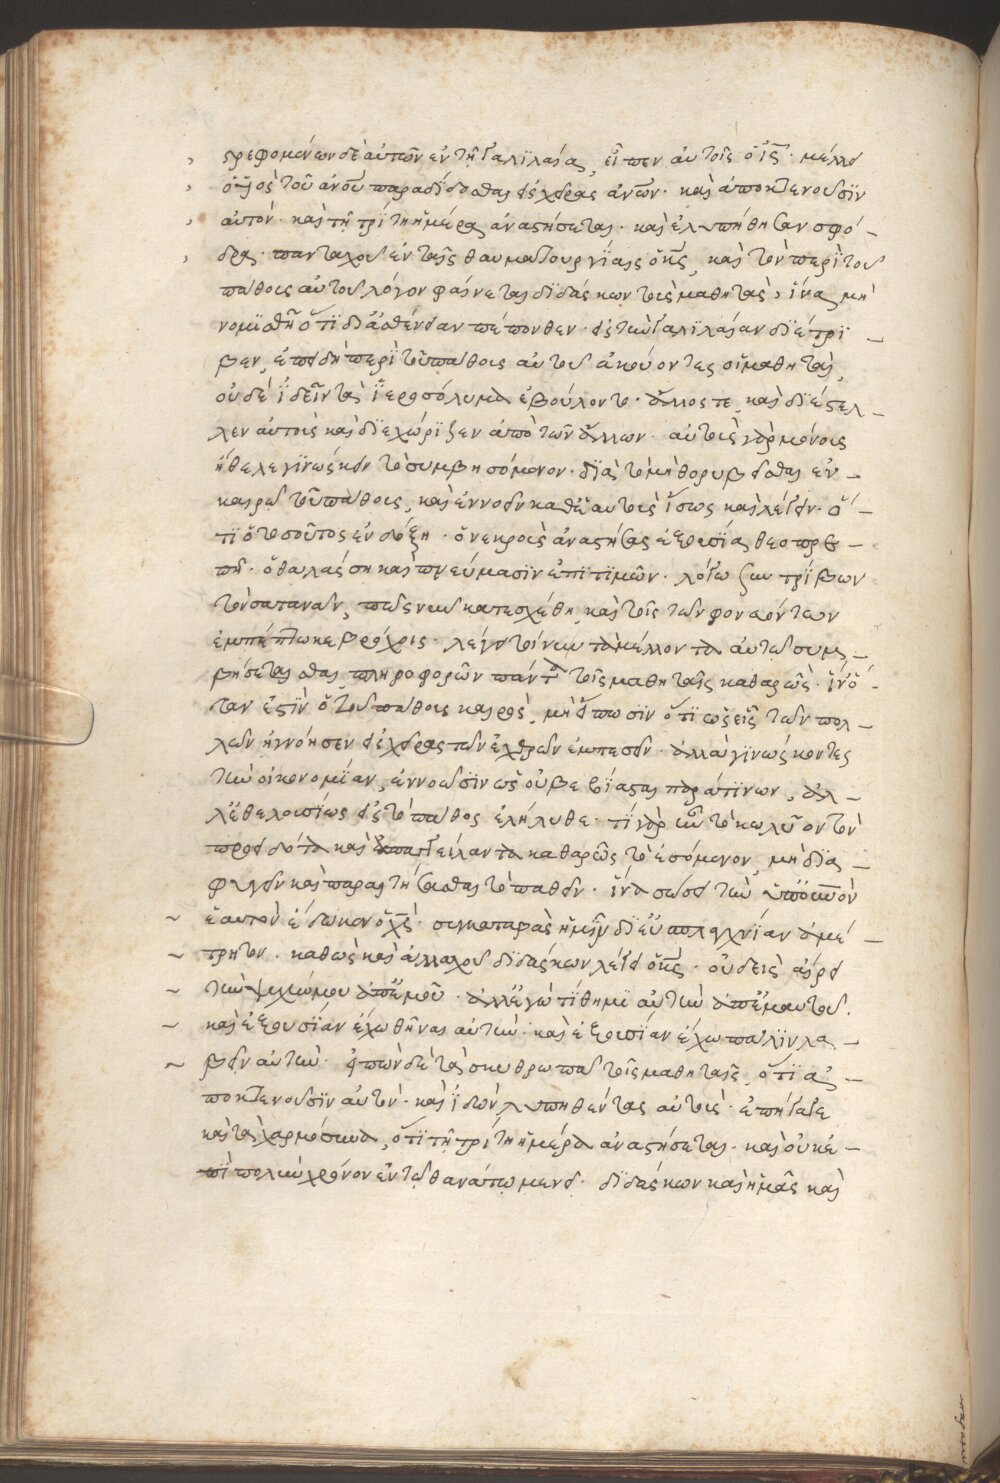 στρεφομένων δὲ αὐτῶν ἐν τῇ Γαλϊλαία, εἶπεν αὐτοῖς ὁ ι̅ς̅· μέλλει
ὁ υ̅ς̅ τοῦ α̅ν̅ο̅υ̅ παραδίδοσθαι εἰς χεῖρας α̅ν̅ω̅ν̅· καὶ ἀποκτενοῦσϊν
αὐτόν· καὶ τῇ τρίτη ἡμέρα ἀναστήσεται· καὶ ἐλυπήθησαν σφό-
δρα· πανταχοῦ ἐν ταῖς θαυματουργΐαις ὁ κ̅ς̅, καὶ τὸν περὶ τοῦ
πάθους αὐτοῦ λόγον φαίνεται δϊδάσκων τοὺς μαθητάς, ἵνα μὴ
νομϊσθῆ ὅτϊ δι' ἀσθένειαν πέπονθεν· εἰς τὴν Γαλϊλαίαν δϊέτρϊ-
βεν, ἐπειδὴ περὶ τοῦ πάθους αὐτοῦ ἀκούοντες οἱ μαθηταὶ,
οὐδὲ ἰδεῖν τὰ ἱεροσόλυμα ἐβούλοντο· ἄλλως τε, καὶ δϊέστελ-
λεν αὐτοὺς καὶ δϊεχώριζεν ἀπὸ τῶν ἄλλων· αὐτοὺς γὰρ μόνους
ἤθελε γϊνώσκειν τὸ συμβησόμενον· δϊὰ τὸ μὴ θορυβεῖσθαι ἐν
καιρῷ τοῦ πάθους, καὶ ἐννοεῖν καθ' ἑαυτοὺς ἴσως καὶ λέγειν· ὅ-
τϊ ὁ τοσοῦτος ἐν δόξη· ὁ νεκροὺς ἀναστήσας ἐξουσία θεοπρε-
πεῖ· ὁ θαλάσση καὶ πνεύμασϊν ἐπϊτϊμῶν· λόγω συντρίβων
τὸν σατανᾶν, πῶς νῦν κατεσχέθη, καὶ τοῖς τῶν φονώντων
ἐμπέπτωκε βρόχοις· λέγει τοίνυν τὰ μέλλοντα αὐτῷ συμ-
βήσεσθαι πληροφορῶν πάντα τοῖς μαθηταῖς καθαρῶς· ἵν' ὅ-
ταν ἐστὶν ὁ τοῦ πάθους καιρὸς, μὴ εἴπωσϊν ὅτϊ ὡς εἷς τῶν πολ-
λῶν ἠγνόησεν εἰς χεῖρας τῶν ἐχθρῶν ἐμπεσεῖν· ἀλλὰ γϊνώσκοντες
τὴν οἰκονομΐαν, ἐννοῶσϊν ὡς οὐ βεβΐασται παρά τϊνων, ἀλ-
λ' ἐθελουσΐως εἰς τὸ πάθος ἐλήλυθε· τί γὰρ ἦν τὸ κωλῦον τὸν
προειδότα καὶ ἀπαγγείλαντα καθαρῶς τὸ ἐσόμενον, μὴ δϊα-
φυγεῖν καὶ παραιτήσασθαι τὸ παθεῖν· ἵνα σώσει τὴν
ἑαυτὸν ἔδωκεν ὁ χ̅ς̅· συγκαταβὰς ἡμῖν δι' εὐσπλαγχνΐαν ἀμέ-
τρητον· καθὼς καὶ ἀλλαχοῦ δϊδάσκων λέγει ὁ κ̅ς̅· οὐδεὶς αἴρει
τὴν ψυχήν μου ἀπ' ἐμοῦ· ἀλλ' ἐγὼ τίθημϊ αὐτὴν ἀπ' ἐμαυτοῦ.
καὶ ἐξουσΐαν ἔχω θῆναι αὐτὴν· καὶ ἐξουσίαν ἔχω πάλϊν λα-
βεῖν αὐτὴν· εἰπὼν δὲ τὰ σκυθρωπὰ τοῖς μαθηταῖς, ὅτϊ ἀ-
ποκτενοῦσϊν αὐτὸν· καὶ ἰδὼν λυπηθέντας αὐτοὺς· ἐπήγαγε
καὶ τὰ χαρμόσυνα, ὅτϊ τῇ τρίτη ἡμέρα ἀναστήσεται· καὶ οὐκ ἐ-
πὶ πολὺν χρόνον ἐν τῷ θανάτω μενεῖ· δϊδάσκων καὶ ἡμᾶς καὶ